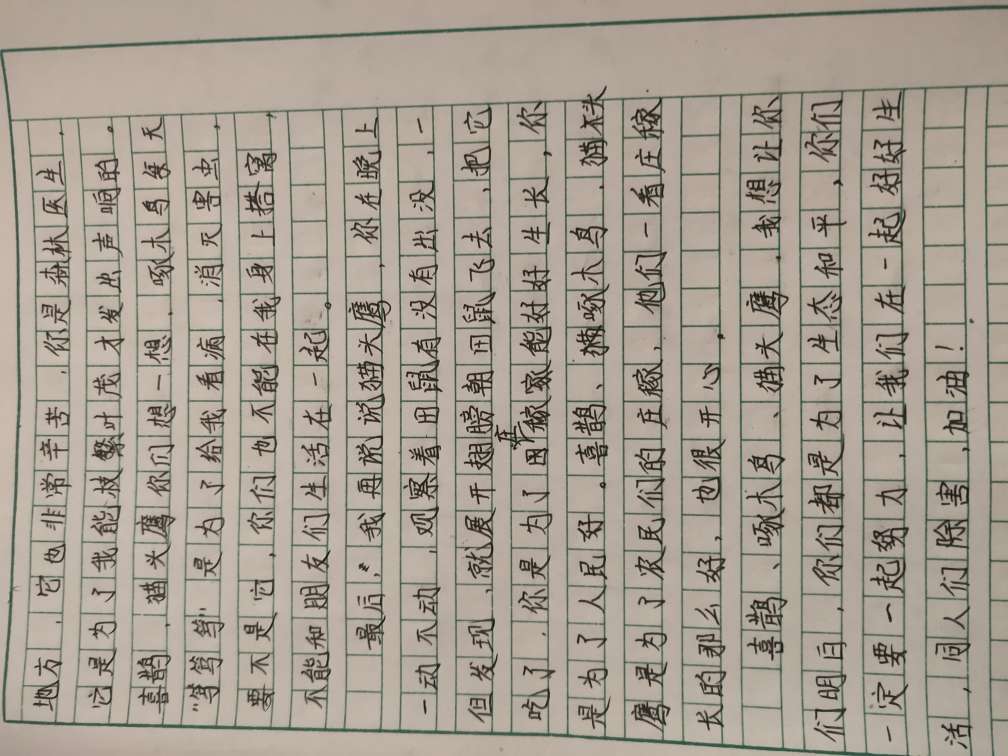 地方，它也非常辛苦，你是森林医生，
它是为了我能枝繁叶茂才发出声响的。
喜鹊，猫头鹰你们想一想，啄木鸟每天
“笃笃笃”是为了给我看病，消灭害虫，
要不是它，你们也不能在我身上搭窝，
不能和朋友们生活在一起。
最后，我再说说猫头鹰，你在晚上
一动不动，观察着田鼠有没有出没，一
但发现，就展开翅膀朝田鼠飞去，把它
吃了，你是为了庄稼能好好生长，你
是为了人民好。喜鹊、啄木鸟，猫头
鹰是为了农民们的庄稼，他们一看庄稼
长的那么好，也很开心。
喜鹊、啄木鸟、猫头鹰，我想让你
们明白，你们都是为了生态和平，你们
一定要一起努力，让我们在一起好好生
活，同人们除害，加油！